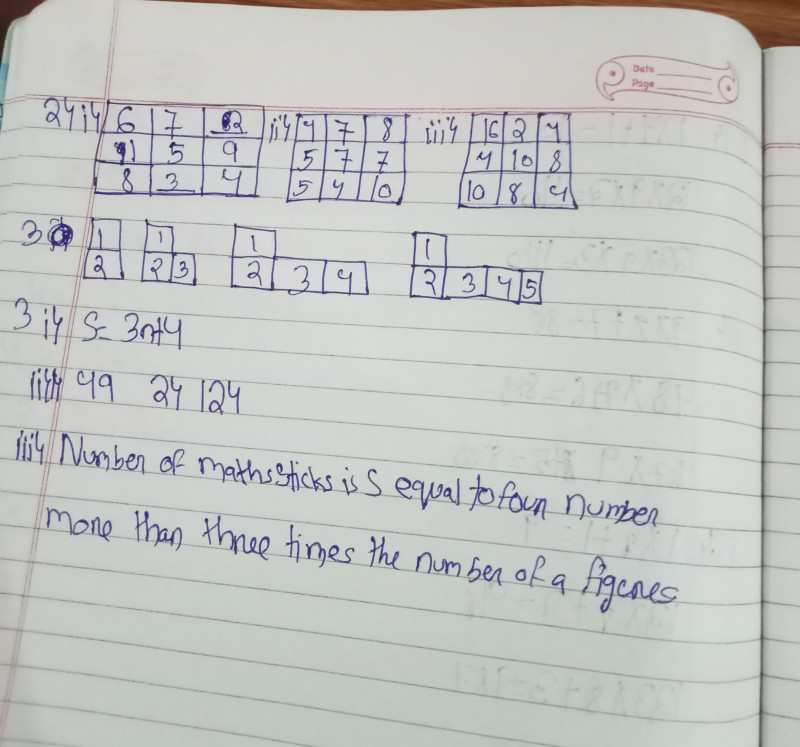 Date
Page
24 i4 6 7 2 ii4 4 7 8 iii4 16 2 4
1 5 9 5 7 7 4 10 8
8 3 4 5 4 10 10 8 4
3 1 1 1 1
2 2 3 2 3 4 2 3 4 5
3 i4 S= 3n+4
ii4 49 24 124
iii4 Number of maths sticks is S equal to foun number
more than three times the number of a figenes